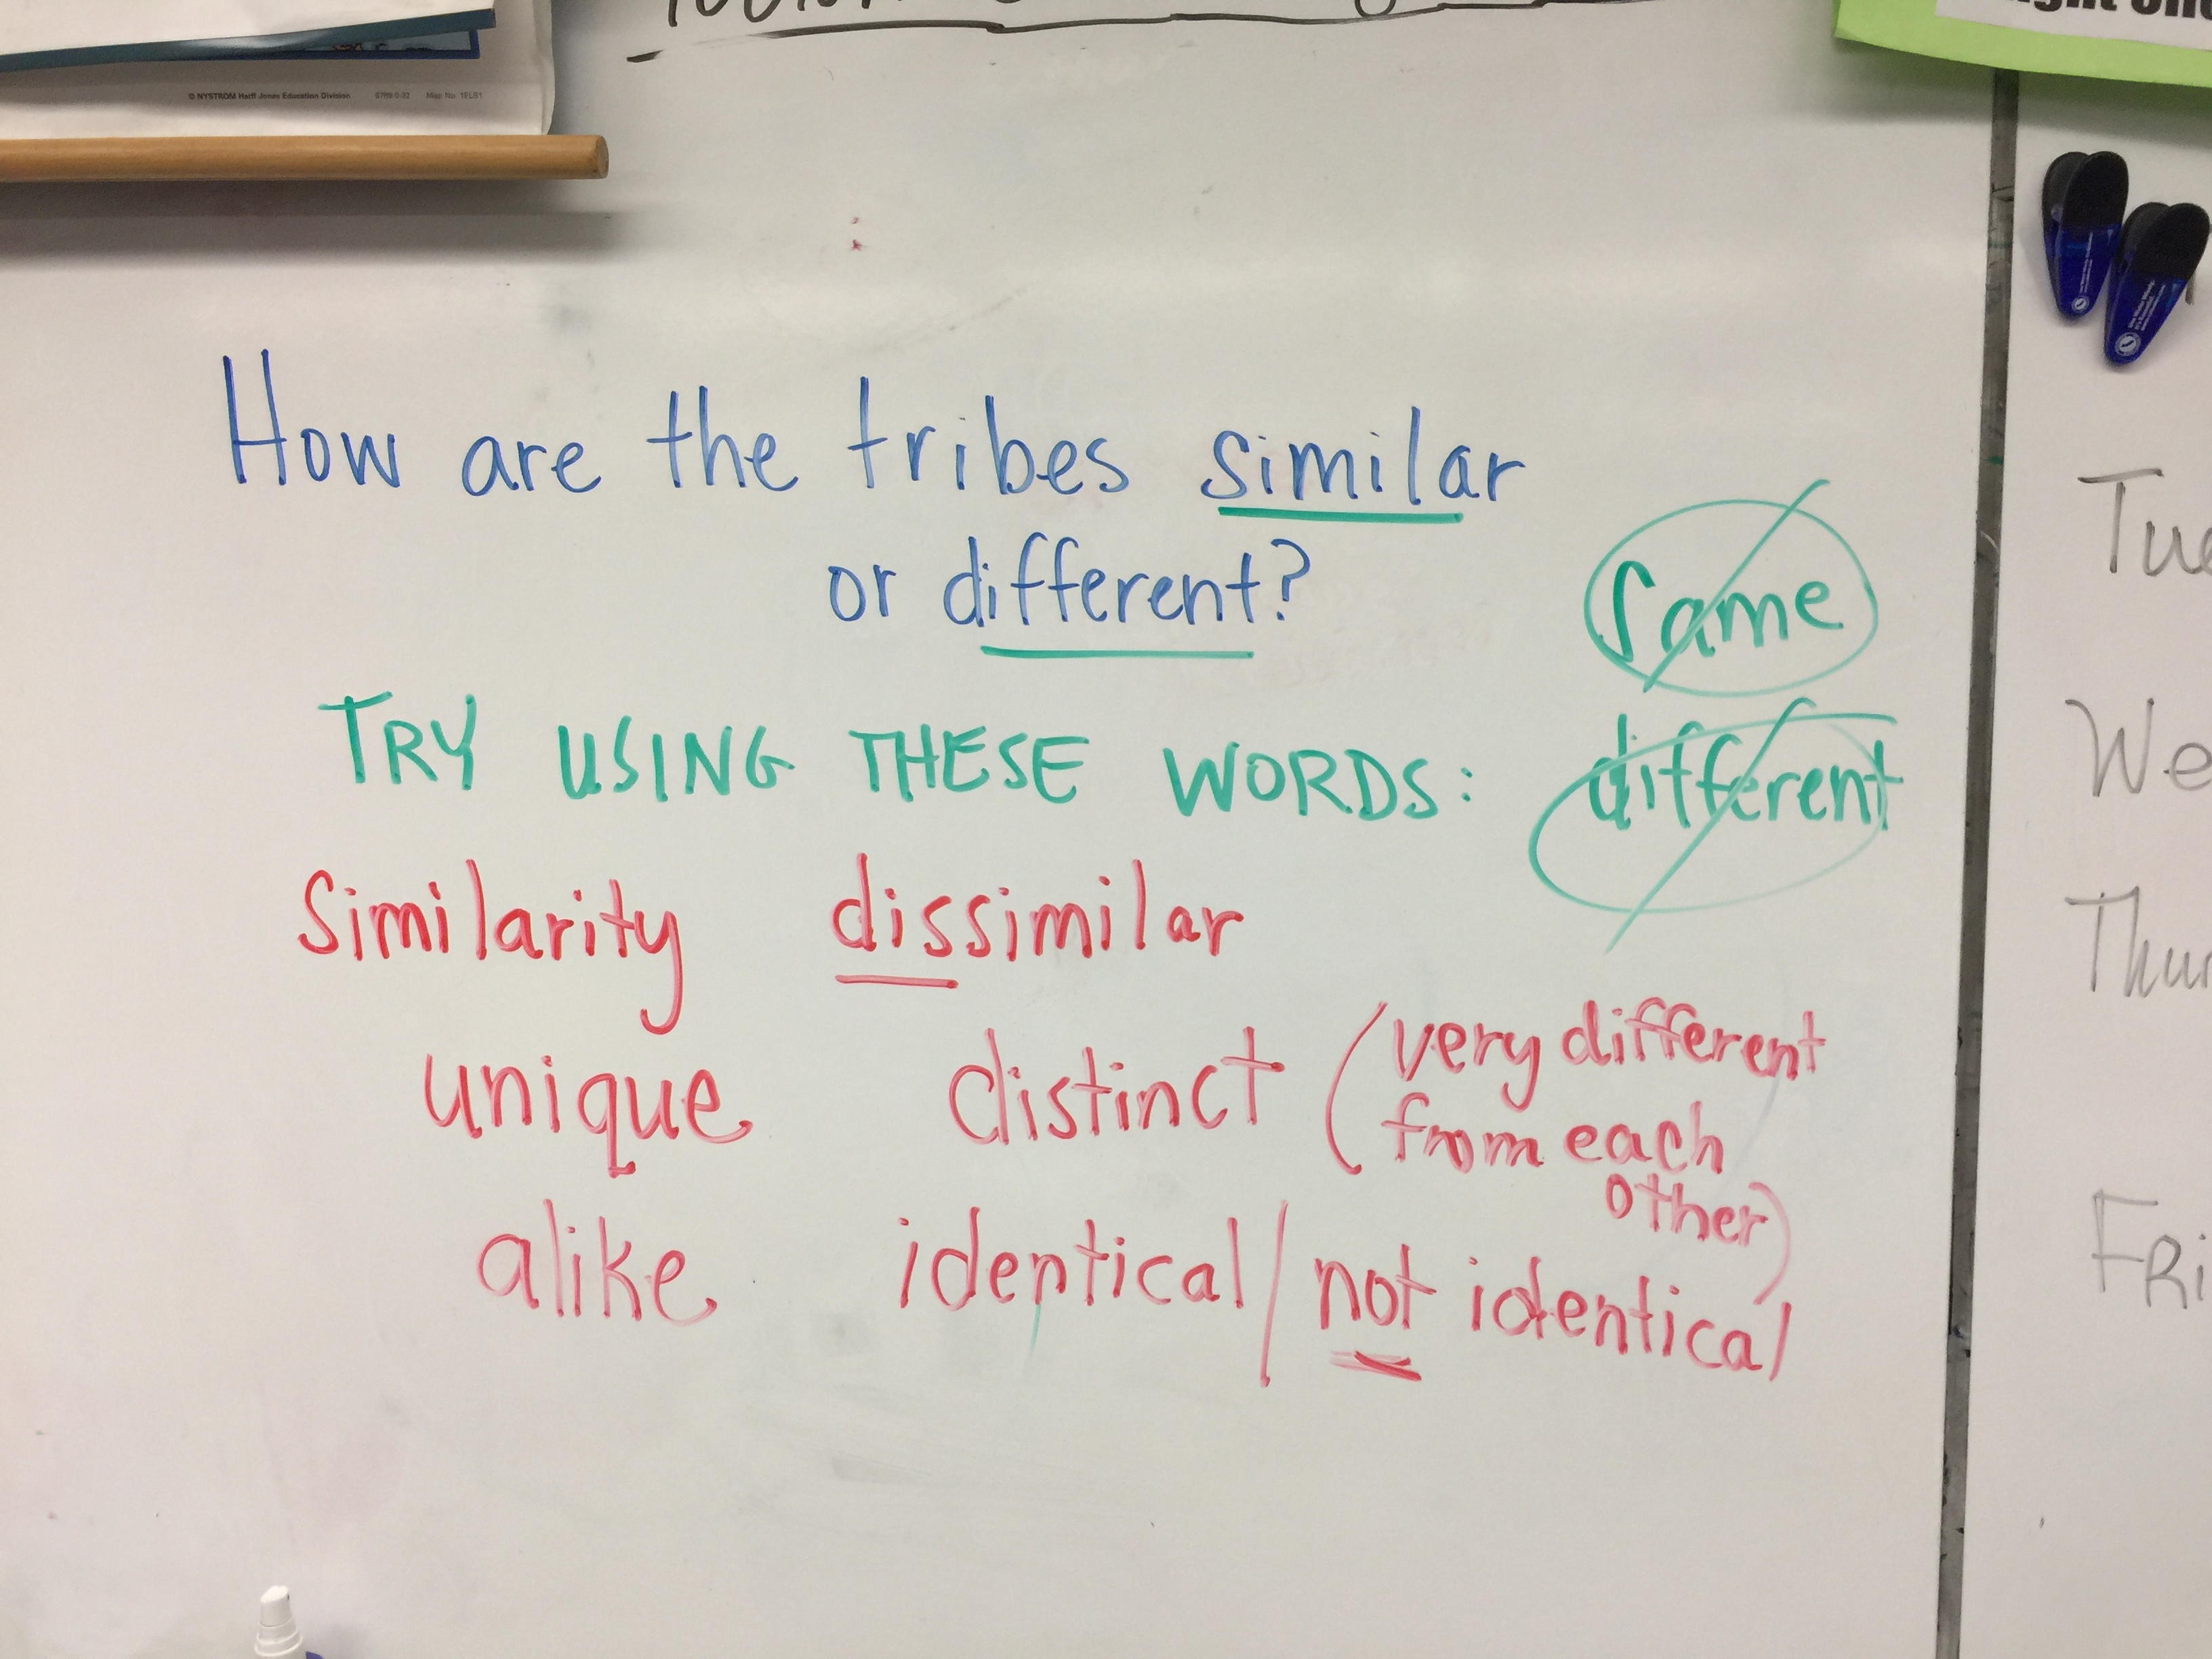 © NYSTROM Herff Jones Education Division
How are the tribes similar
or different?
same
TRY USING THESE WORDS:
different
Similarity dissimilar
unique distinct (very different
from each
other)
alike identical/not identical